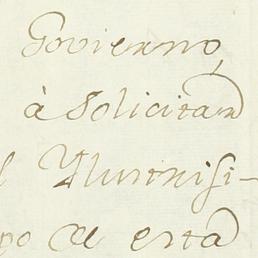 Govierno,
à Solicitad
l Yllustrisi-
po de esta